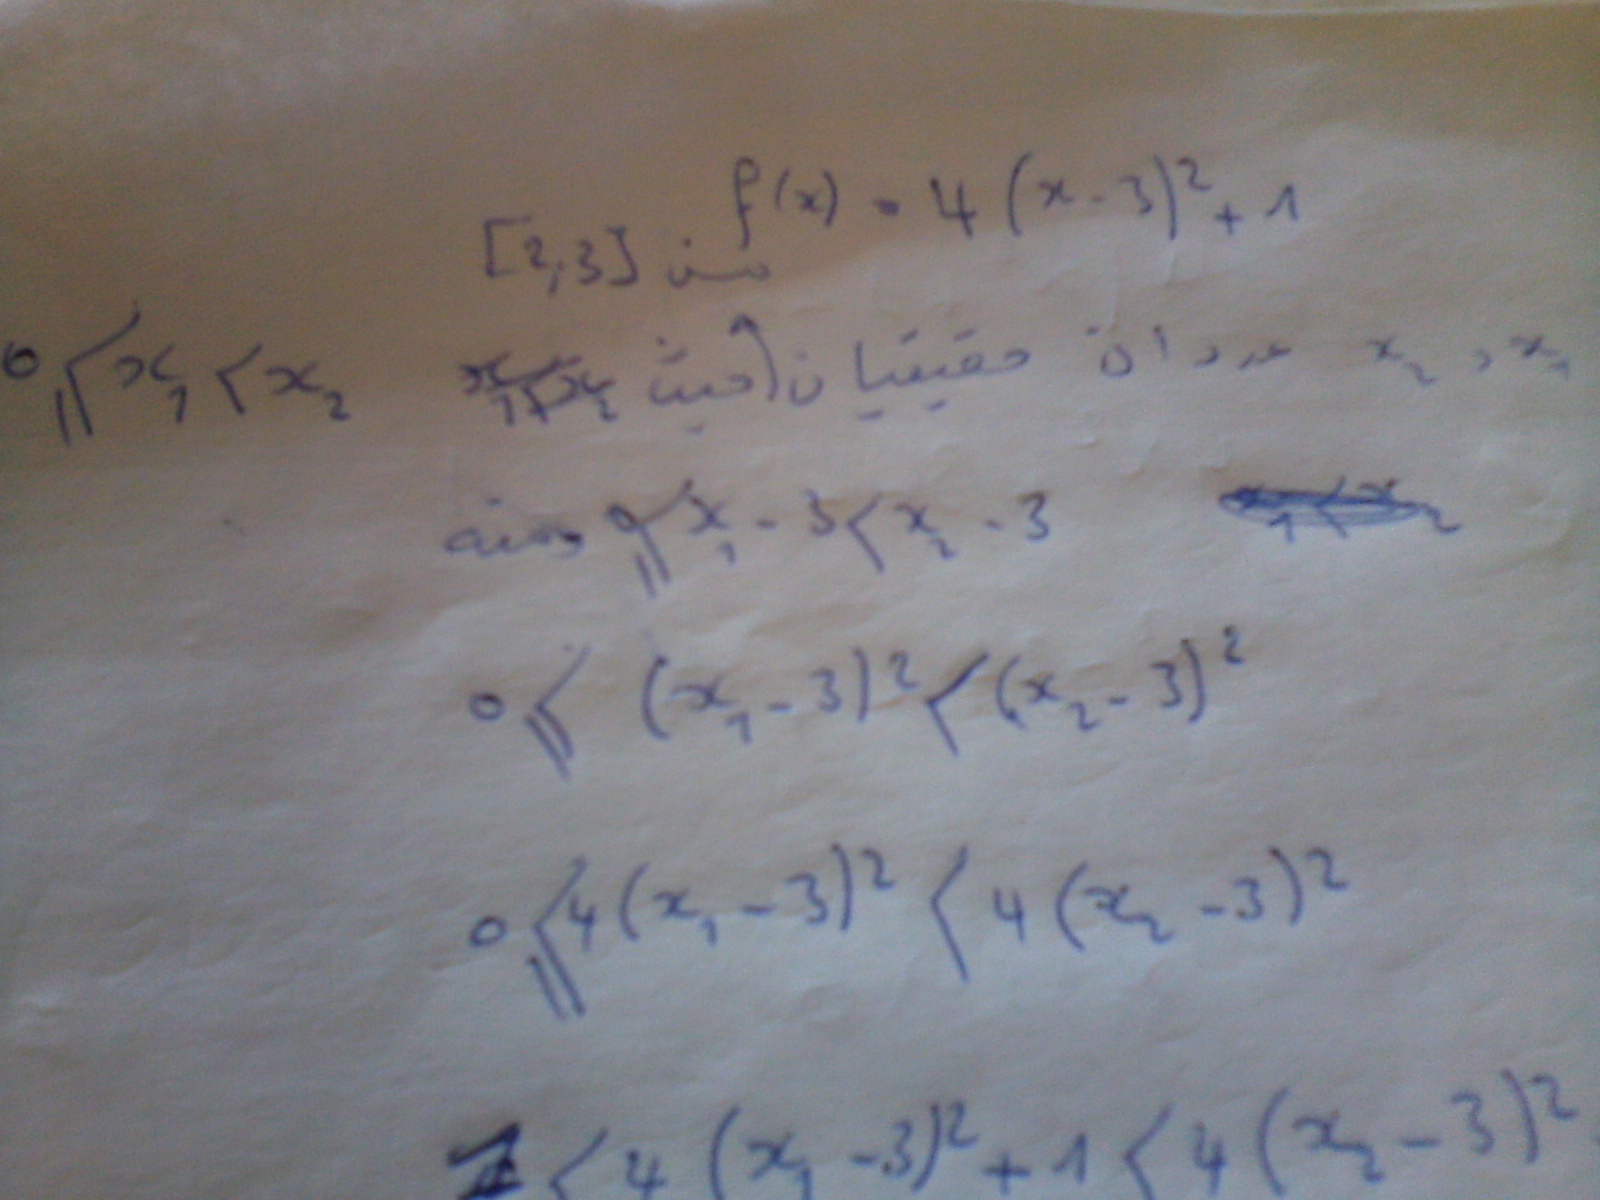 f(x) = 4(x - 3)² + 1
[2,3] من
x₁ و x₂ عددان حقيقيان حيث x₁<x₂ 0 ⩽ x₁ < x₂
0 ⩽ x₁ - 3 < x₂ - 3 ومنه
0 ⩽ (x₁ - 3)² < (x₂ - 3)²
0 ⩽ 4(x₁ - 3)² < 4(x₂ - 3)²
1 < 4(x₁ - 3)² + 1 < 4(x₂ - 3)²